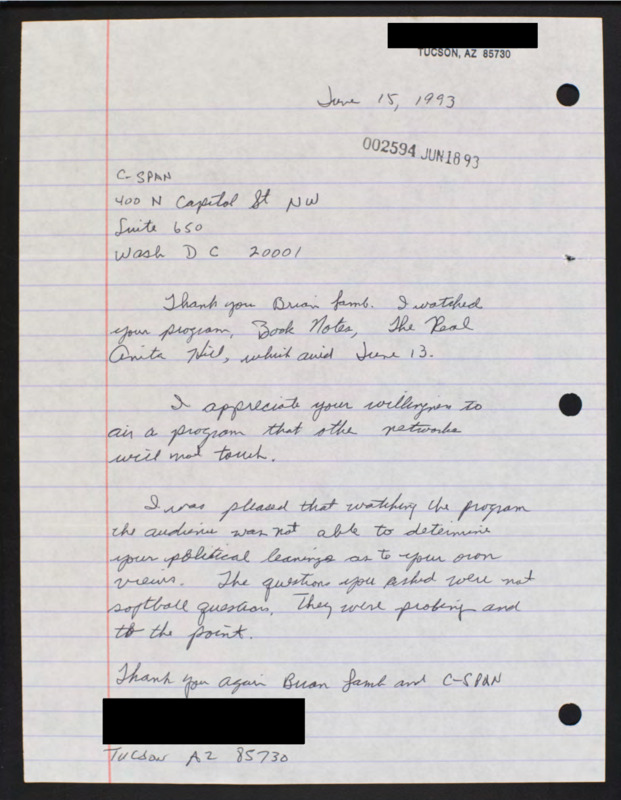 TUCSON, AZ 85730
June 15, 1993
002594 JUN 18 93
C-SPAN
400 N Capitol St NW
Suite 650
Wash D C 20001
Thank you Brian Lamb. I watched
your program, Book Notes, The Real
Anita Hill, which aired June 13.
I appreciate your willingness to
air a program that other networks
will not touch.
I was pleased that watching the program
the audience was not able to determine
your political leanings as to your own
views. The questions you asked were not
softball questions. They were probing and
to the point.
Thank you again Brian Lamb and C-SPAN
TUCSON AZ 85730